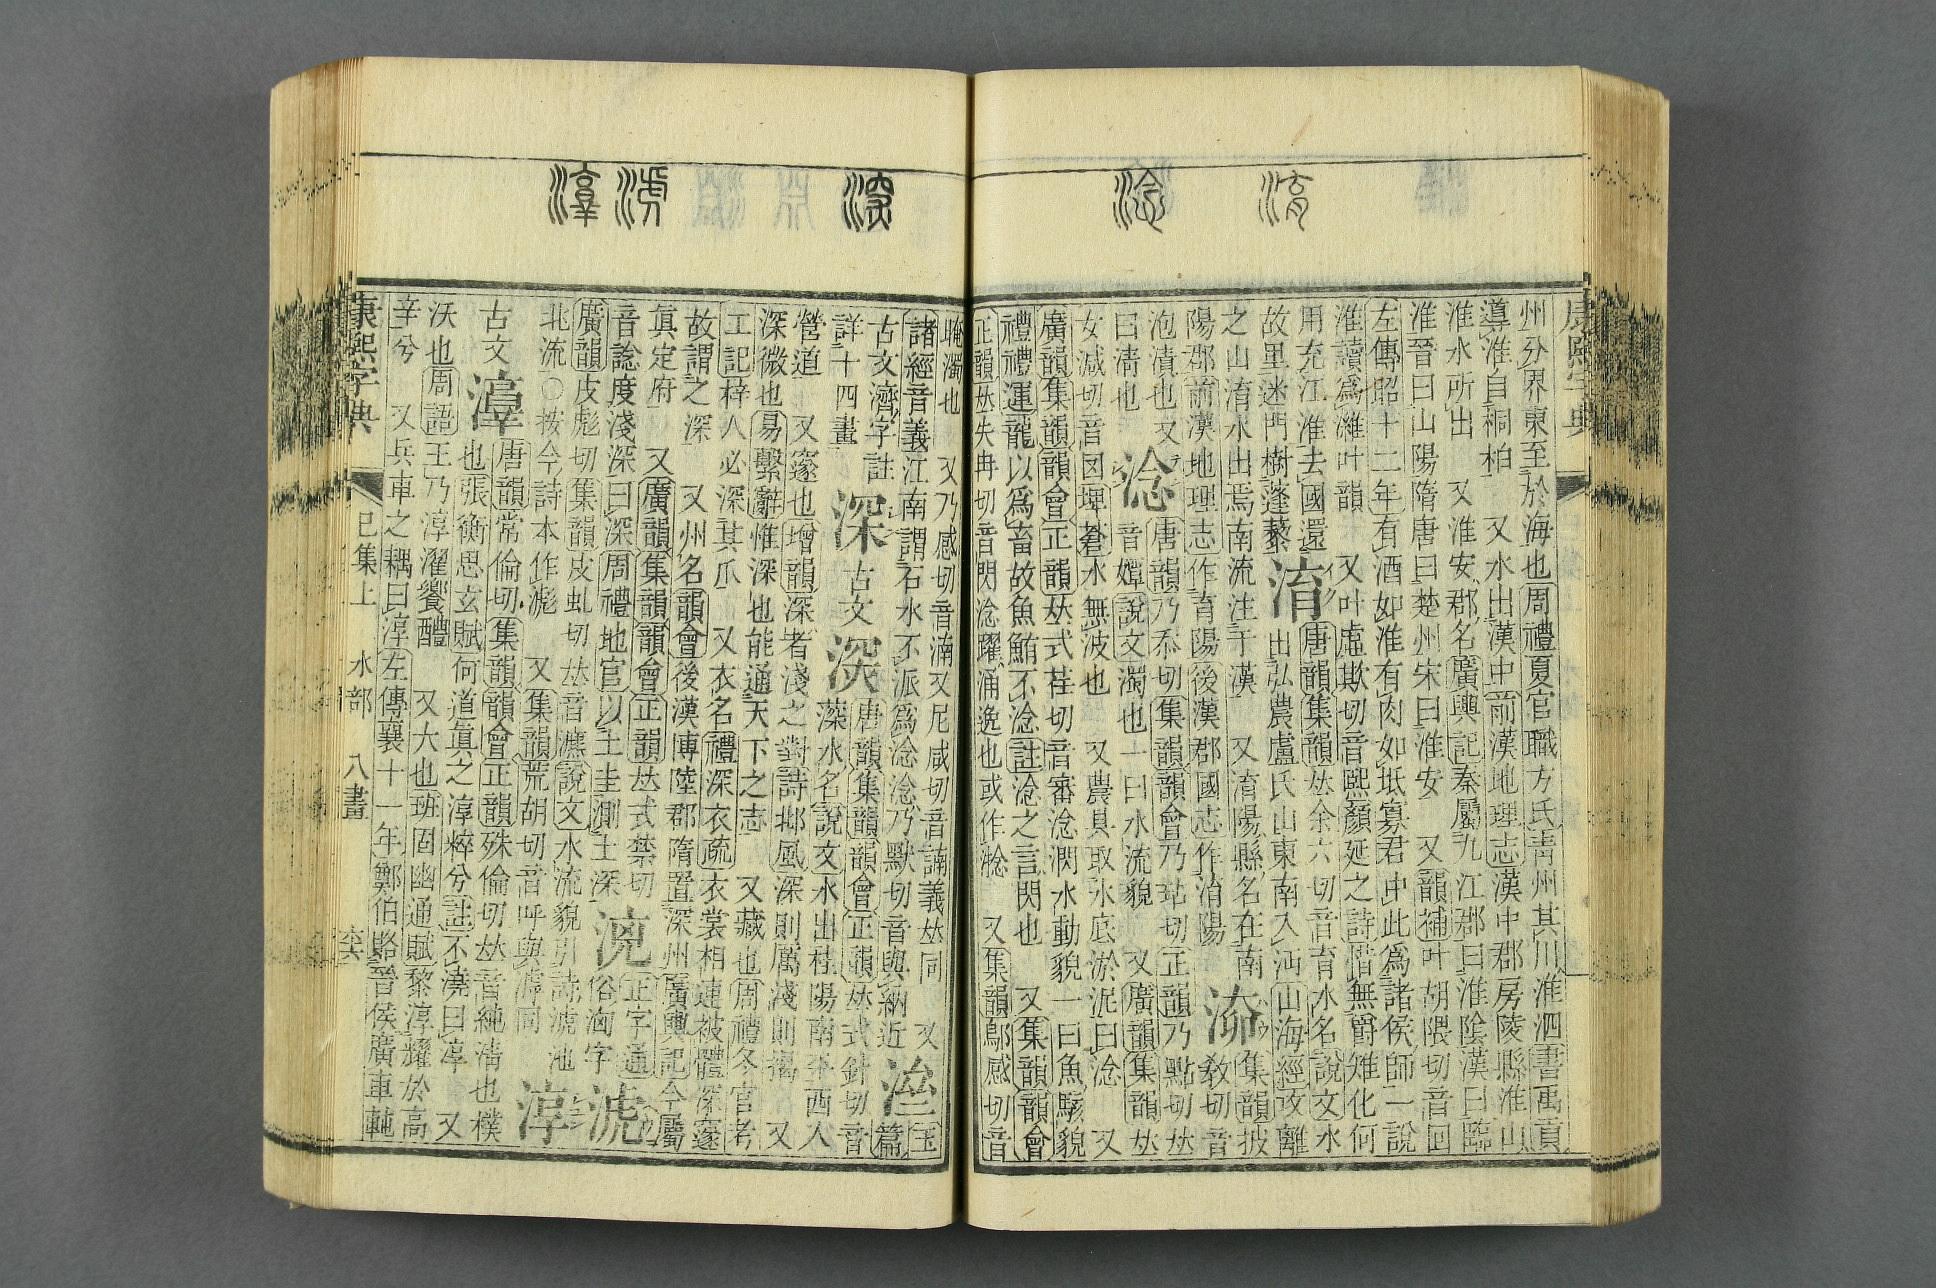 淯
淰
深
淲
淳
康熙字典
州分界東至於海也周禮夏官職方氏靑州其川淮泗書禹貢
導淮自桐柏 又水出漢中前漢地理志漢中郡房陵縣淮山
淮水所出 又淮安郡名廣輿記秦屬九江郡曰淮陰漢曰臨
淮晉曰山陽隋唐曰楚州宋曰淮安 又韻補叶胡隈切音回
左傳昭十二年有酒如淮有肉如坻寡君中此爲諸侯師一說
淮讀爲濰叶韻 又叶虛欺切音熙顏延之詩惜無爵雉化何
用充江淮去國還
故里迷門樹蓬藜
淯
唐韻集韻𠀤余六切音育水名說文水
出弘農盧氏山東南入沔山海經攻離
之山淯水出焉南流注于漢 又淯陽縣名在南
陽郡前漢地理志作育陽後漢郡國志作淯陽
集韻披敎切音
泡漬也又
曰淸也
淰
唐韻乃忝切集韻韻會乃玷切正韻乃點切𠀤
音嬋說文濁也一曰水流貌 又廣韻集韻𠀤
女減切音囡埤蒼水無波也 又農具取水底淤泥曰淰 又
廣韻集韻韻會正韻𠀤式荏切音審淰㴸水動貌一曰魚駭貌
禮禮運龍以爲畜故魚鮪不淰註淰之言閃也 又集韻韻會
正韻𠀤失冉切音閃淰躍涌逸也或作 又集韻鄔感切音
晻濁也 又乃感切音湳又尼咸切音諵義𠀤同 又
諸經音義江南謂石水不派爲淰淰乃默切音與納近
玉篇
古文濟字註
詳十四畫
深
古文
㴱
唐韻集韻韻會正韻𠀤式針切音
深水名說文水出桂陽南平西入
營道 又邃也增韻深者淺之對詩邶風深則厲淺則揭 又
深微也易繫辭惟深也能通天下之志 又藏也周禮冬官考
工記梓人必深其爪 又衣名禮深衣疏衣裳相連被體深邃
故謂之深 又州名韻會後漢博陸郡隋置深州廣輿記今屬
眞定府 又廣韻集韻韻會正韻𠀤式禁切
音諗度淺深曰深周禮地官以土圭測土深
正字通
俗㴔字
淲
廣韻皮彪切集韻皮虬切𠀤音瀌說文水流貌引詩淲池
北流〇按今詩本作滮 又集韻荒胡切音呼與滹同
淳
古文
唐韻常倫切集韻韻會正韻殊倫切𠀤音純淸也樸
也張衡思玄賦何道眞之淳粹兮註不澆曰淳 又
沃也周語王乃淳濯饗醴 又大也班固幽通賦黎淳耀於高
辛兮 又兵車之耦曰淳左傳襄十一年鄭伯賂晉侯廣車軘
康熙字典 巳集上 水部 八畫